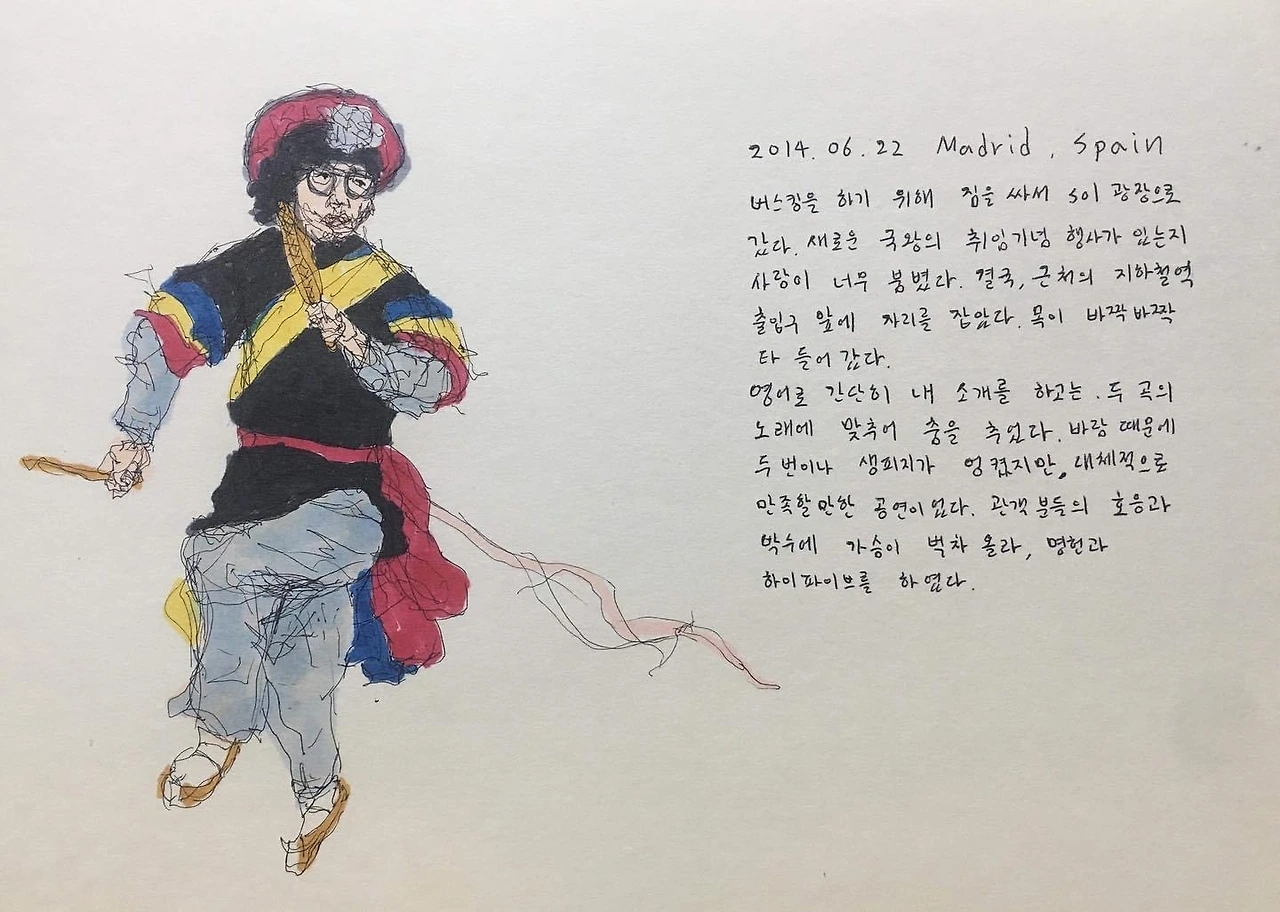 2014. 06. 22 Madrid, Spain
버스킹을 하기 위해 짐을 싸서 sol 광장으로
갔다. 새로운 국왕의 취임기념 행사가 있는지
사람이 너무 붐볐다. 결국, 근처의 지하철역
출입구 앞에 자리를 잡았다. 목이 바짝바짝
타 들어 갔다.
영어로 간단히 내 소개를 하고는. 두 곡의
노래에 맞추어 춤을 추었다. 바람 때문에
두 번이나 생피지가 엉켰지만, 대체적으로
만족할만한 공연이었다. 관객분들의 호응과
박수에 가슴이 벅차 올라, 명헌과
하이파이브를 하였다.